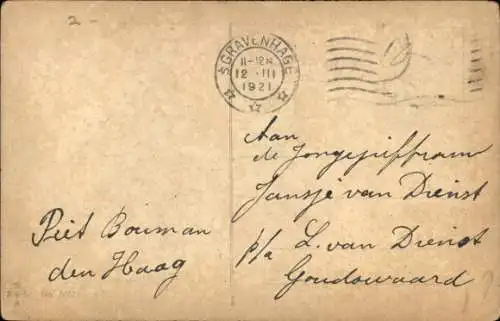 2-
'SGRAVENHAGE
11-12 N
12 III
1921
Aan
de Jongejuffrouw
Jansje van Dienst
p/a L. van Dienst
Goudswaard
Piet Bouman
den Haag